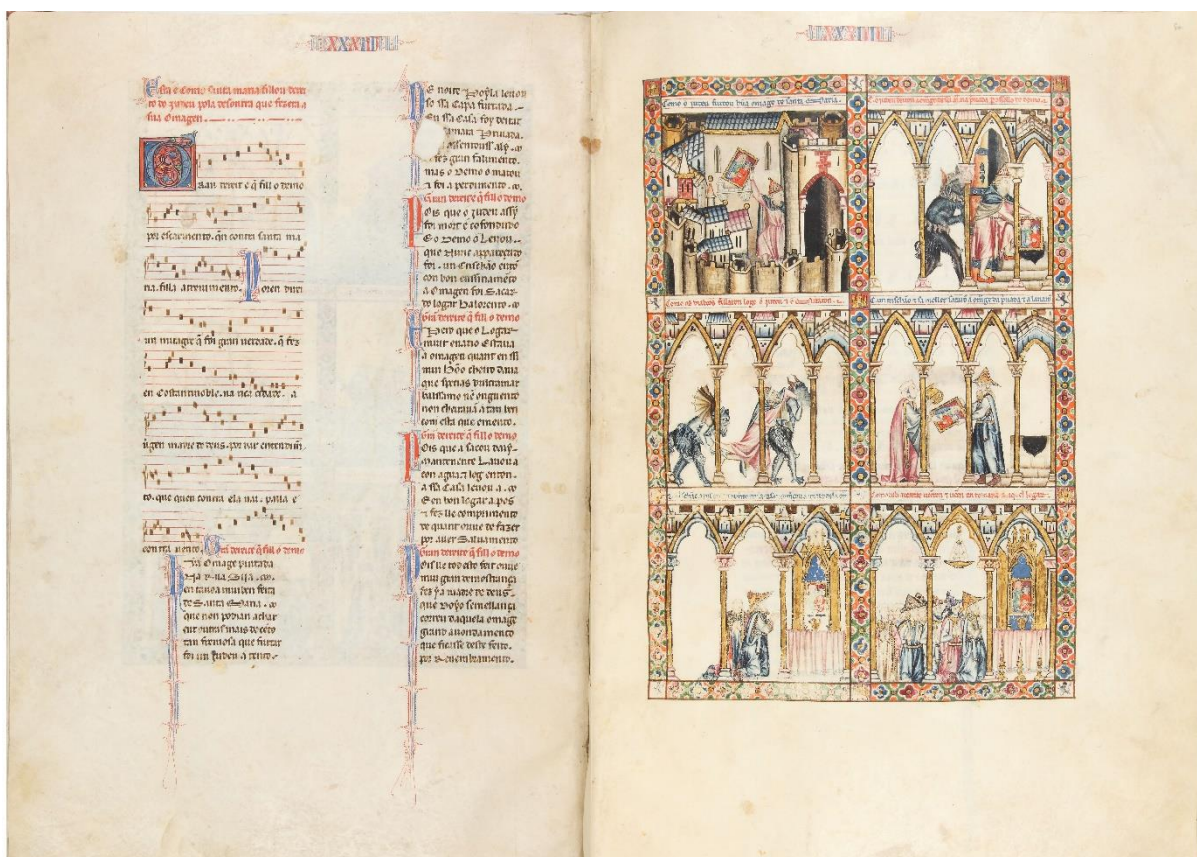 XXXIIII
Esta e como santa maria fillou derei
to do judeu pola desonrra que fezera a
sua omagen.
Gran dereit e q̃ fill o demo
por escarmento. q̃n contra santa ma
ria. filla atreuimento. Poren direi
un miragre q̃ foi gran uerdade. q̃ fez
en Costantinoble. na rica cidade. a
uirgen madre de deus. por dar entendim̃
to. que quen contra ela uai. palla e
contra uento. Gran dereite q̃ fill o demo
hũa omage pintada
na rua siia
en tauoa mui ben feita
de Santa Maria.
que non podian achar
ent outras mais de cento
tan fremosa que furtar
foi un judeu a tento.
De noite Poy la leuou
so ssa capa furtada.
en ssa casa foy deitar
camara priuada.
assentouss aly.
fez gran falimento.
mas o demo o matou
e foi a perdimento.
Gran dereite q̃ fill o demo
Pois que o judeu assy
foi mort e cofondudo
e o demo o leuou
que nunc appareçudo
foi. un crischão entõ
con bon enssinamẽto
a omagen foi sacar
do logar balorento.
Gran dereite q̃ fill o demo
Pero que o logar
muit enatio estaua
a omagen quant en ssi
mui bõo cheiro daua
que speçias dultramar
balssamo nẽ onguento
non cheiraua a tan ben
com esta que emento.
Gran dereite q̃ fill o demo
Pois que a sacou daly
mantenente lauou a
con agua. e log enton
a ssa casa leuou a.
e en bon logar a pos
e fez lle comprimento
de quant ouue de fazer
por auer saluamento
Gran dereite q̃ fill o demo
Pois lle tod esto feit ouue
mui gran demostrança
fez y a madre de deus
que doyo semellança
correu daquela omage
grand auondamento
que ficasse deste feito
por renenbramento.
XXXIIII
Como o judeu furtou hũa omage de santa Maria
Como os diabos fillaron logo o judeu e o
Como un crischão